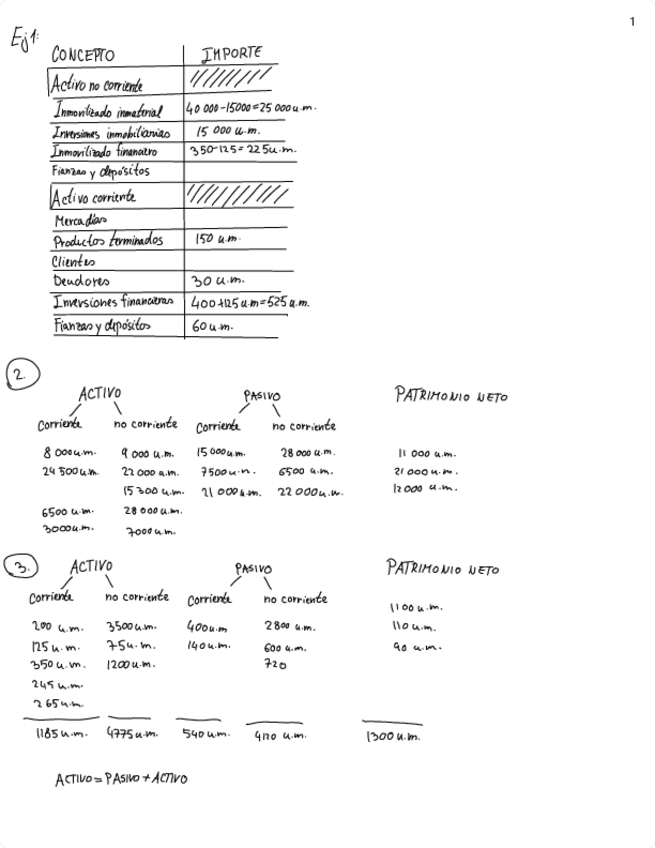 1
Ej 1:
CONCEPTO IMPORTE
Activo no corriente
Inmovilizado inmaterial 40 000-15000=25 000 u.m.
Inversiones inmobiliarias 15 000 u.m.
Inmovilizado financiero 350-125=225 u.m.
Fianzas y depósitos
Activo corriente
Mercadías
Productos terminados 150 u.m.
Clientes
Deudores 30 u.m.
Inversiones financieras 400+125 u.m=525 u.m.
Fianzas y depósitos 60 u.m.
2.
ACTIVO PASIVO PATRIMONIO NETO
Corriente no corriente Corriente no corriente
8 000 u.m. 9 000 u.m. 15 000 u.m. 28 000 u.m. 11 000 u.m.
24 500 u.m. 22 000 u.m. 7500 u.m. 6500 u.m. 21 000 u.m.
15 300 u.m. 21 000 u.m. 22 000 u.m. 12 000 u.m.
6500 u.m. 28 000 u.m.
3000 u.m. 7000 u.m.
3.
ACTIVO PASIVO PATRIMONIO NETO
Corriente no corriente Corriente no corriente
200 u.m. 3500 u.m. 400 u.m 2800 u.m. 1100 u.m.
125 u.m. 75 u.m. 140 u.m. 600 u.m. 110 u.m.
350 u.m. 1200 u.m. 720 90 u.m.
245 u.m.
265 u.m.
1185 u.m. 4775 u.m. 540 u.m. 4120 u.m. 1300 u.m.
ACTIVO = PASIVO + ACTIVO